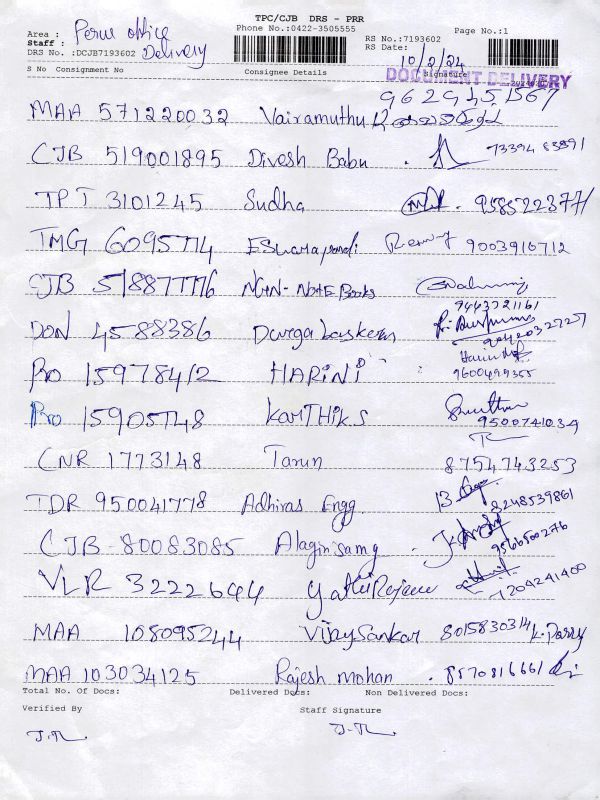 TPC/CJB DRS - PRR
Phone No.:0422-3505555
Area : Peru office
Staff : Delivery
DRS No. :DCJB7193602
RS No.:7193602
RS Date: 10/2/24
Page No.:1
S No Consignment No Consignee Details Signature
DOCUMENT DELIVERY
MAA 571220032 Vairamuthu
CJB 519001895 Divesh Babu
TPT 3101245 Sudha 9585223771
TMG 6095714 9003916712
CJB 518877776 NGN- NOTE Books
9443721161
DON 4588386
PRO 159784/2 HARINI
9600499355
PRO 15905748 KARTHIKS
9500741039
CNR 1773148 Tarun 8754743253
TDR 950041778 Adhiras Engg 8248539861
CJB -80083085 Alagirisamy 9566500276
VLR 3222694 7204241400
MAA 108095244 VijaySankar 8015830314
MAA 103034125 Rajesh mohan 8570816661
Total No. Of Docs: Delivered Docs: Non Delivered Docs:
Verified By Staff Signature